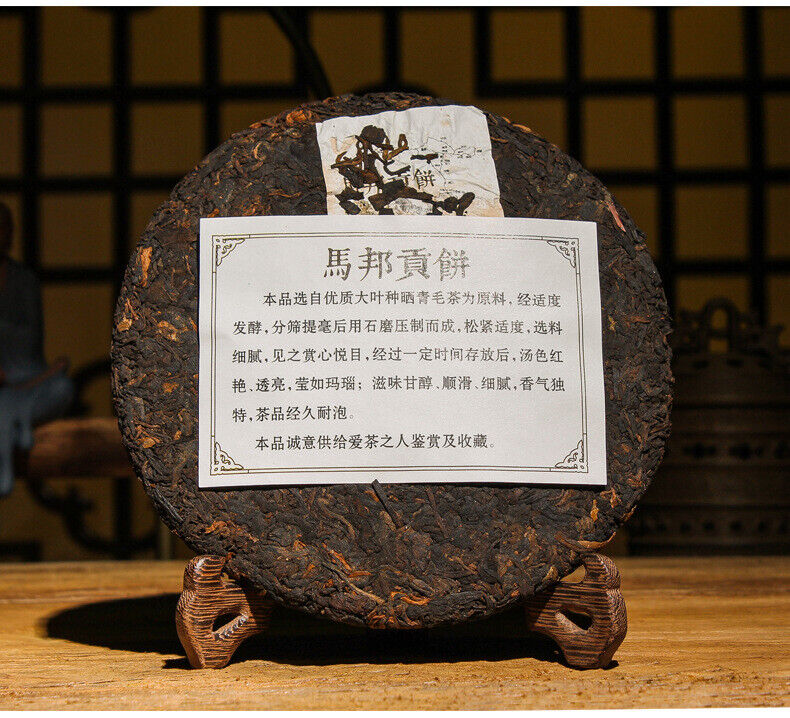 贡餅
馬邦貢餅
本品选自优质大叶种晒青毛茶为原料，经适度
发酵，分筛提毫后用石磨压制而成，松紧适度，选料
细腻，见之赏心悦目，经过一定时间存放后，汤色红
艳、透亮，莹如玛瑙；滋味甘醇、顺滑、细腻，香气独
特，茶品经久耐泡。
本品诚意供给爱茶之人鉴赏及收藏。